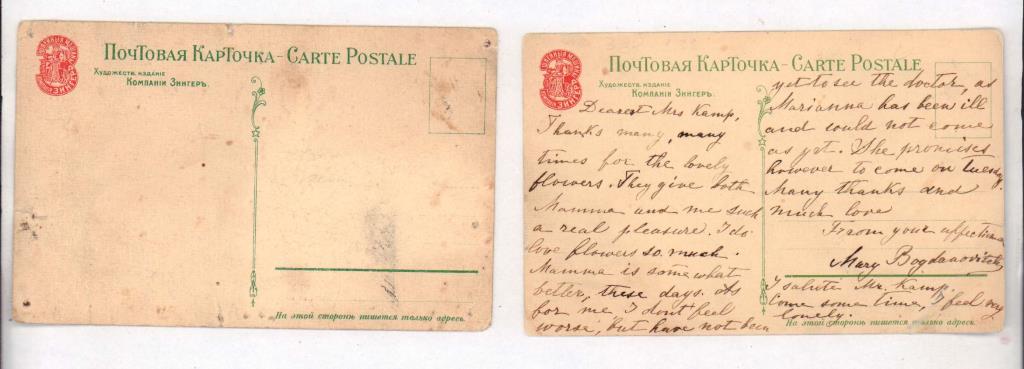 ПОЧТОВАЯ КАРТОЧКА - CARTE POSTALE
ХУДОЖЕСТВ. ИЗДАНІЕ
КОМПАНІИ ЗИНГЕРЪ.
На этой сторонѣ пишется только адресъ.
ПОЧТОВАЯ КАРТОЧКА - CARTE POSTALE
ХУДОЖЕСТВ. ИЗДАНІЕ
КОМПАНІИ ЗИНГЕРЪ.
Dearest Mrs Kamp,
Thanks many, many
times for the lovely
flowers. They give both
Mamma and me such
a real pleasure. I do
love flowers so much.
Mamma is some what
better, these days. As
for me I don't feel
worse, but have not been
yet to see the doctor, as
Marianna has been ill
and could not come
as yet. She promises
however to come on tuesday.
Many thanks and
much love
From your affectionate
Mary
I salute Mr. Kamp.
Come some time, I feel very
lonely.
На этой сторонѣ пишется только адресъ.